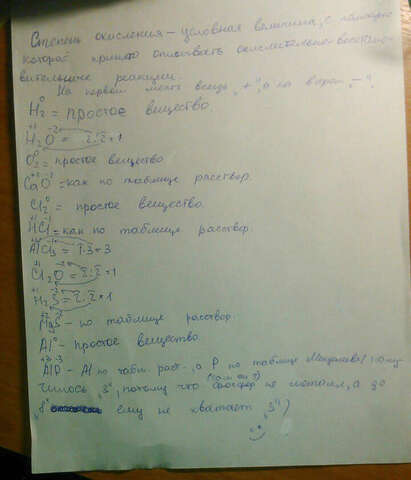 Степень окисления - условная величина, с помощью
которой принято описывать окислительно-восстано-
вительные реакции.
На первом месте всегда "+", а на втором "-".
H₂⁰ = простое вещество.
H₂⁺¹O⁻² =
O₂⁰ = простое вещество
Ca⁺²O⁻² = как по таблице раствор.
Cl₂⁰ = простое вещество.
H⁺¹Cl⁻¹ = как по таблице раствор.
AlCl₃ = 1·3=3
Cl₂⁺¹O⁻² =
H₂⁺¹S⁻² =
Mg⁺²S⁻² - по таблице раствор.
Al⁰ - простое вещество
Al⁺³P⁻³ - Al по табл. раст., а P по таблице Менделеева (полу-
чилось "3", потому что фосфор не металл, а до
"8" ему не хватает "3")